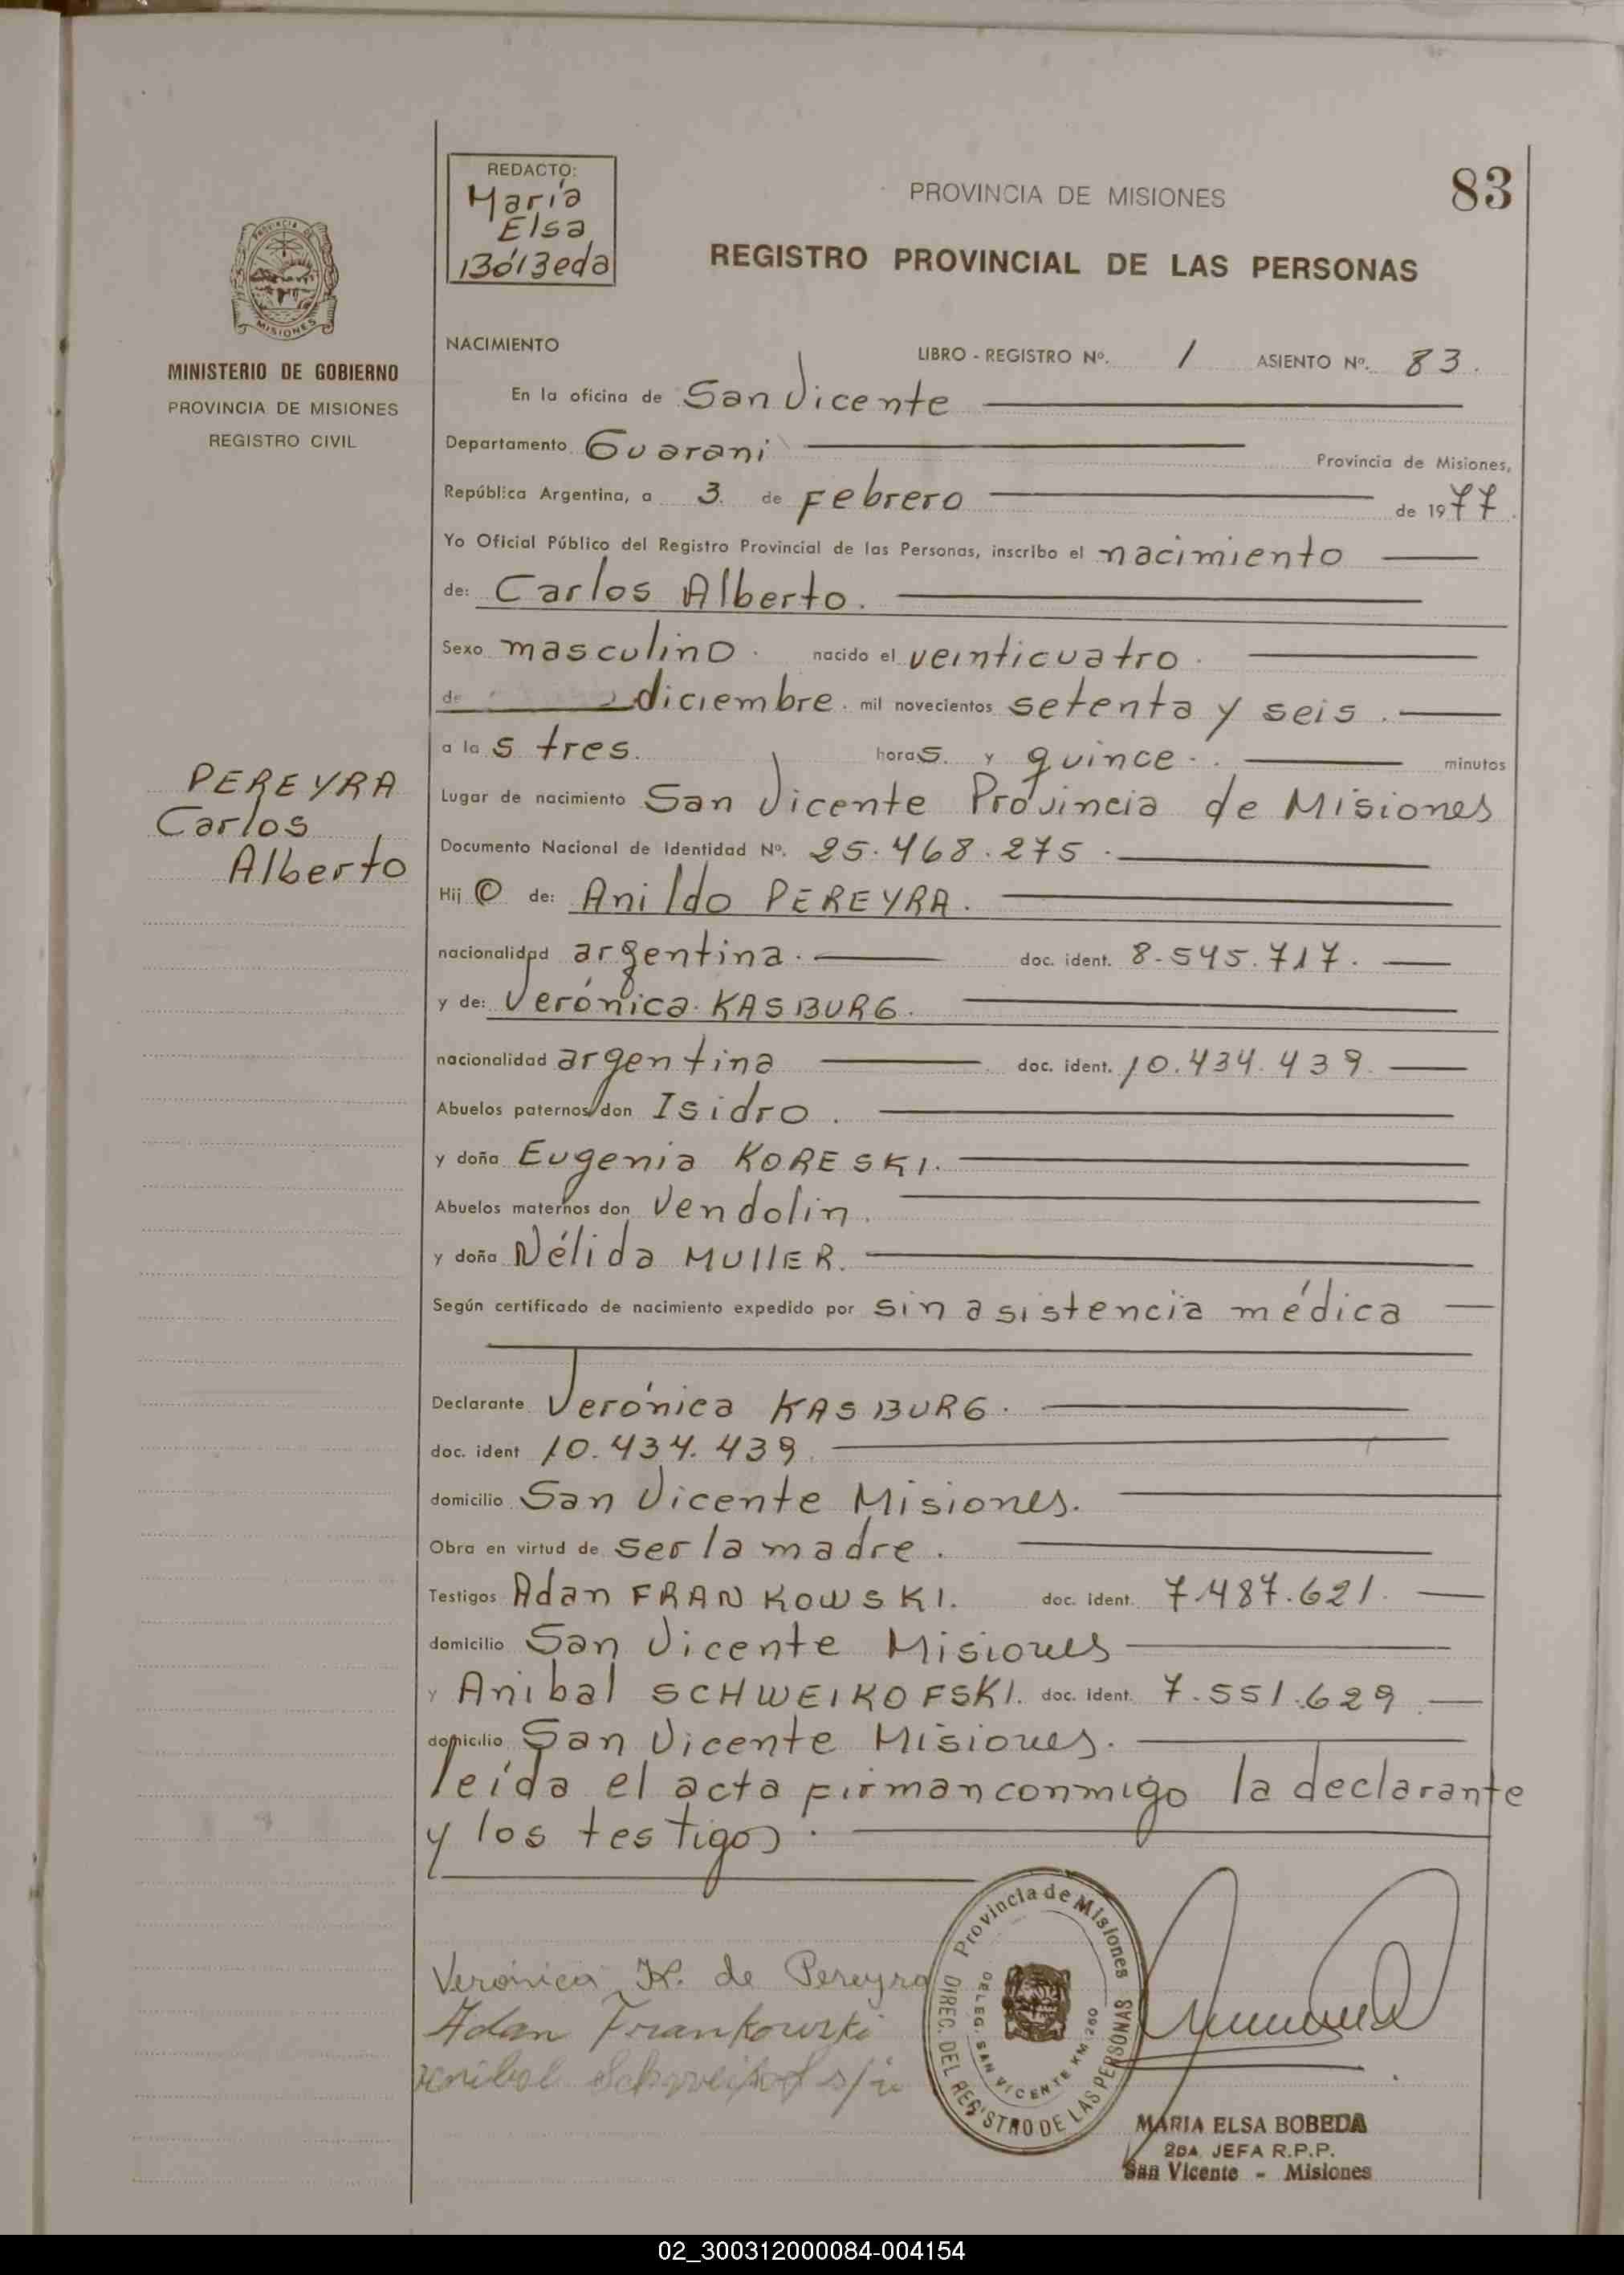 REDACTO:
María
Elsa
Bobeda
PROVINCIA DE MISIONES
83
REGISTRO PROVINCIAL DE LAS PERSONAS
PROVINCIA DE
MISIONES
MINISTERIO DE GOBIERNO
PROVINCIA DE MISIONES
REGISTRO CIVIL
NACIMIENTO
LIBRO - REGISTRO Nº. 1 ASIENTO Nº. 83.
En la oficina de San Vicente
Departamento Guarani Provincia de Misiones,
República Argentina, a 3 de Febrero de 1977.
Yo Oficial Público del Registro Provincial de las Personas, inscribo el nacimiento
de: Carlos Alberto.
Sexo masculino. nacido el veinticuatro.
de diciembre. mil novecientos setenta y seis.
a las tres. horas. y quince. minutos
PEREYRA
Carlos
Alberto
Lugar de nacimiento San Vicente Provincia de Misiones
Documento Nacional de Identidad Nº. 25.468.275.
Hijo de: Anildo PEREYRA.
nacionalidad argentina. doc. ident. 8.545.717.
y de: Verónica KASBURG.
nacionalidad argentina doc. ident. 10.434.439.
Abuelos paternos don Isidro.
y doña Eugenia KORESKI.
Abuelos maternos don Vendolin.
y doña Nélida MULLER.
Según certificado de nacimiento expedido por sin asistencia médica
Declarante Verónica KASBURG.
doc. ident 10.434.439.
domicilio San Vicente Misiones.
Obra en virtud de ser la madre.
Testigos Adan FRANKOWSKI. doc. ident. 7.487.621.
domicilio San Vicente Misiones
y Anibal SCHWEIKOFSKI. doc. ident. 7.551.629
domicilio San Vicente Misiones.
leída el acta firman conmigo la declarante
y los testigos.
Verónica K. de Pereyra
Adan Frankowski
Provincia de Misiones
DIREC. DEL REGISTRO DE LAS PERSONAS
DELEG. SAN VICENTE KM. 260
MARIA ELSA BOBEDA
2DA. JEFA R.P.P.
San Vicente - Misiones
02_300312000084-004154